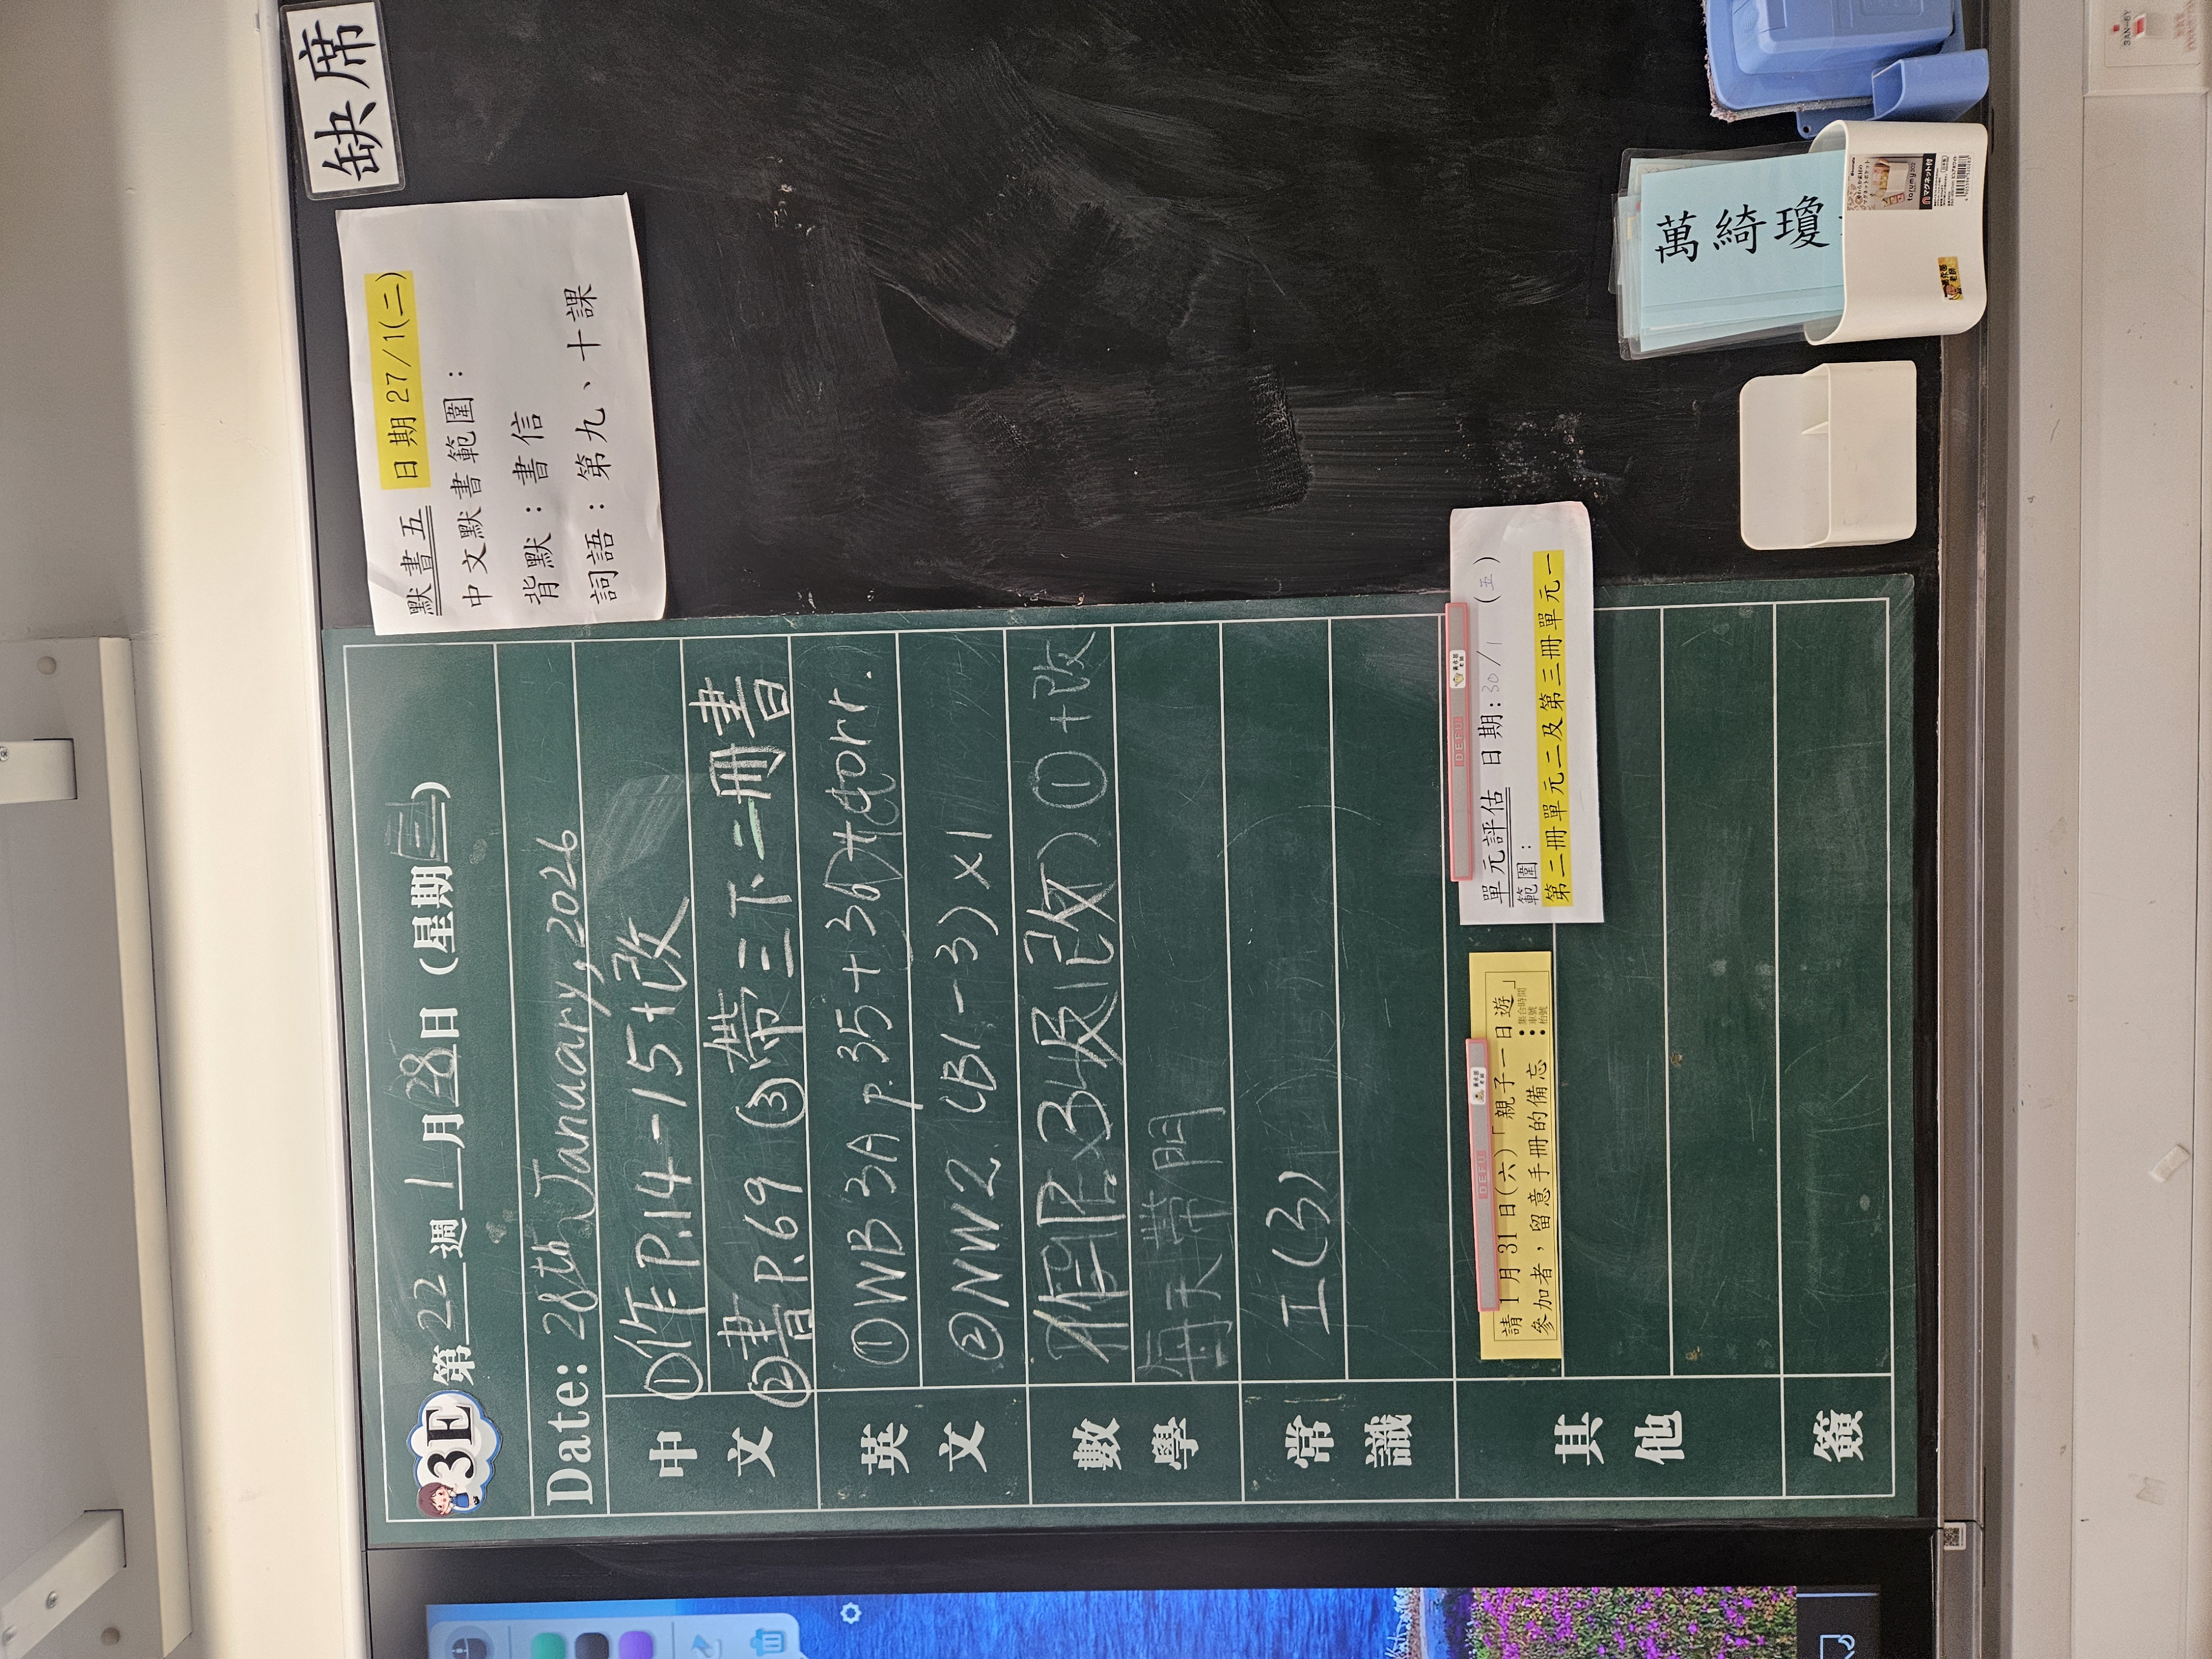 缺席
默書五 日期27/1(二)
中文默書範圍：
背默：書信
詞語：第九、十課
3E 第22週1月28日(星期三)
Date: 28th January, 2026
中文
①作P.14-15+改
②書P.69 ③帶三下二冊書
英文
①WB 3A p.35+36+corr.
②NW2 (B1-3)×1
數學
作P.34及改 ①+改
每天帶
常識
工(3)
其他
單元評估 日期:30/1 (五)
範圍：
第二冊單元二及第三冊單元一
請1月31日(六)「親子一日遊」
參加者，留意手冊的備忘
●集合時間
●車號
●枱號
簽
萬綺瓊
DEFU
DEFU
torumy
マグネット付